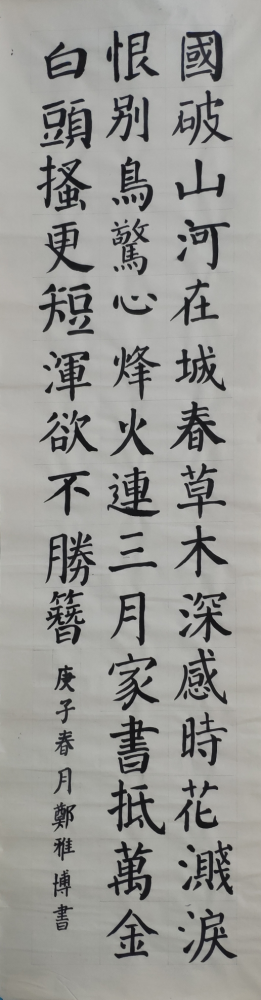 國破山河在城春草木深感時花濺淚
恨別鳥驚心烽火連三月家書抵萬金
白頭搔更短渾欲不勝簪
庚子春月鄭雅博書